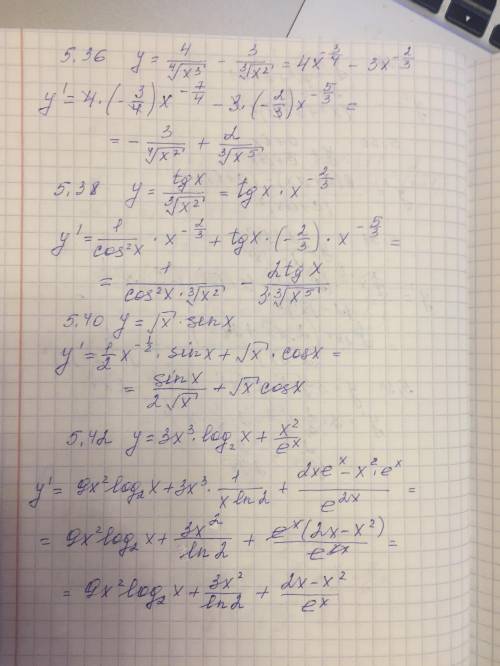 5.36 y = 4/∜(x³) − 3/∛(x²) = 4x^(−3/4) − 3x^(−2/3)
y' = 4·(−3/4)x^(−7/4) − 3·(−2/3)x^(−5/3) =
= −3/∜(x⁷) + 2/∛(x⁵)
5.38 y = tgx/∛(x²) = tgx·x^(−2/3)
y' = 1/cos²x · x^(−2/3) + tgx·(−2/3)·x^(−5/3) =
= 1/(cos²x·∛(x²)) − 2tgx/(3·∛(x⁵))
5.40 y = √x·sinx
y' = 1/2 x^(−1/2)·sinx + √x·cosx =
= sinx/(2√x) + √x cosx
5.42 y = 3x³·log₂x + x²/eˣ
y' = 9x²log₂x + 3x³·1/(x ln2) + (2xeˣ − x²·eˣ)/e^(2x) =
= 9x²log₂x + 3x²/ln2 + eˣ(2x − x²)/e^(2x) =
= 9x²log₂x + 3x²/ln2 + (2x − x²)/eˣ